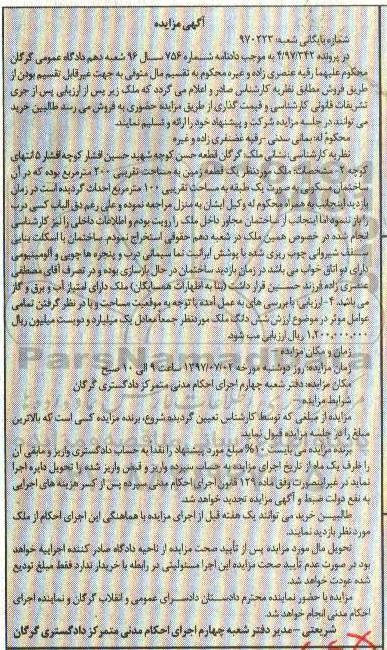 آگهی مزایده
شماره بایگانی شعبه: ۹۷۰۲۲۳
در پرونده ۴/۹۷/۳۴۲ به موجب دادنامه شماره ۷۵۶ سال ۹۶ شعبه دهم دادگاه عمومی گرگان
محکوم علیهما رقیه عنصری زاده و غیره محکوم به تقسیم مال متوفی به جهت غیرقابل تقسیم بودن از
طریق فروش مطابق نظریه کارشناس صادر و اعلام می گردد که ملک زیر پس از ارزیابی پس از جری
تشریفات قانونی کارشناسی و قیمت گذاری از طریق مزایده حضوری به فروش می رسد طالبین خرید
می توانند در جلسه مزایده شرکت و پیشنهاد خود را ارائه و تسلیم نمایند.
محکوم له: یمانی سدنی -رقیه عنصری زاده و غیره
نظریه کارشناسی: نشانی ملک: گرگان قطعه حسن کوچه شهید حسین افشار کوچه افشار ۵ انتهای
کوچه ۲-مشخصات: ملک موردنظر یک قطعه زمین به مساحت تقریبی ۲۰۰ مترمربع بوده که در آن
ساختمان مسکونی به صورت یک طبقه به مساحت تقریبی ۱۰۰ مترمربع احداث گردیده است در زمان
بازدید اینجانب به همراه محکوم له و کیل ایشان به منزل مراجعه نموده و علی رغم دق الباب کسی درب
را باز ننمود لذا اینجانب از ساختمان مجاور داخل ملک را رویت بودم و اطلاعات داخلی را نیز کارشناسی
انجام شده در خصوص همین ملک در شعبه دهم حقوقی استخراج نمودم. ساختمان با اسکلت بنایی
سقف شیروانی چوب ریزی شده با پوشش ایرانیت نما سیمانی درب و پنجره ها چوبی و آلومینیومی
دارای دو اتاق خواب می باشد در زمان بازدید ساختمان در حال بازسازی بوده و در تصرف آقای مصطفی
عنصری زاده فرزند حسین قرار داشت (بنا به اظهارات همسایگان) ملک دارای امتیاز آب و برق و گاز
می باشد. ۴-ارزیابی: با بررسی های به عمل آمده با توجه به موقعیت مساحت و با در نظر گرفتن تمامی
عوامل موثر در موضوع ارزش شش دانگ ملک موردنظر جمعا معادل یک میلیارد و دویست میلیون ریال
۱.۲۰۰.۰۰۰.۰۰۰ ریال ارزیابی می شود.
زمان و مکان مزایده
زمان مزایده: روز دوشنبه مورخه ۱۳۹۷/۰۷/۰۲ ساعت ۹ الی ۱۰ صبح
مکان مزایده: دفتر شعبه چهارم اجرای احکام مدنی متمرکز دادگستری گرگان
شرایط مزایده
مزایده از مبلغی که توسط کارشناس تعیین گردیده شروع، برنده مزایده کسی است که بالاترین
مبلغ را در جلسه مزایده قبول نماید.
برنده مزایده می بایست ۱۰% مبلغ مورد پیشنهاد را نقدا به حساب دادگستری واریز و مابقی آن
را ظرف یک ماه از تاریخ اجرای مزایده به حساب سپرده واریز و فیش واریز شده را تحویل دایره اجرا
نماید در غیراینصورت وفق ماده ۱۲۹ قانون اجرای احکام مدنی سپرده پس از کسر هزینه های اجرایی
به نفع دولت ضبط و آگهی مزایده تجدید خواهد شد.
طالبیسن خرید می توانند یک هفته قبل از اجرای مزایده با هماهنگی این اجرای احکام از ملک
مورد نظر بازدید نمایند.
تحویل مال مورد مزایده پس از تأیید صحت مزایده از ناحیه دادگاه صادر کننده اجراییه خواهد
بود در صورت عدم تأیید صحت مزایده این اجرا مسئولیتی در رابطه با خریدار ندارد فقط مبلغ تودیع
شده عودت خواهد شد.
مزایده با حضور نماینده محترم دادستان دادسرای عمومی و انقلاب گرگان و نماینده اجرای
احکام مدنی انجام خواهد شد.
شریعتی -مدیر دفتر شعبه چهارم اجرای احکام مدنی متمرکز دادگستری گرگان